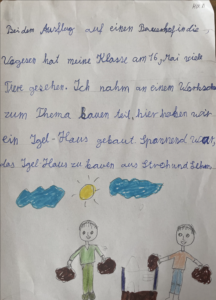 Bei dem Ausflug auf einen Bauernhof in die
Vogesen hat meine Klasse am 16. Mai viele
Tiere gesehen. Ich nahm an einem Workshop
zum Thema bauen teil, hier haben wir
ein Igel-Haus gebaut. Spannend war,
das Igel-Haus zu bauen aus Stroh und